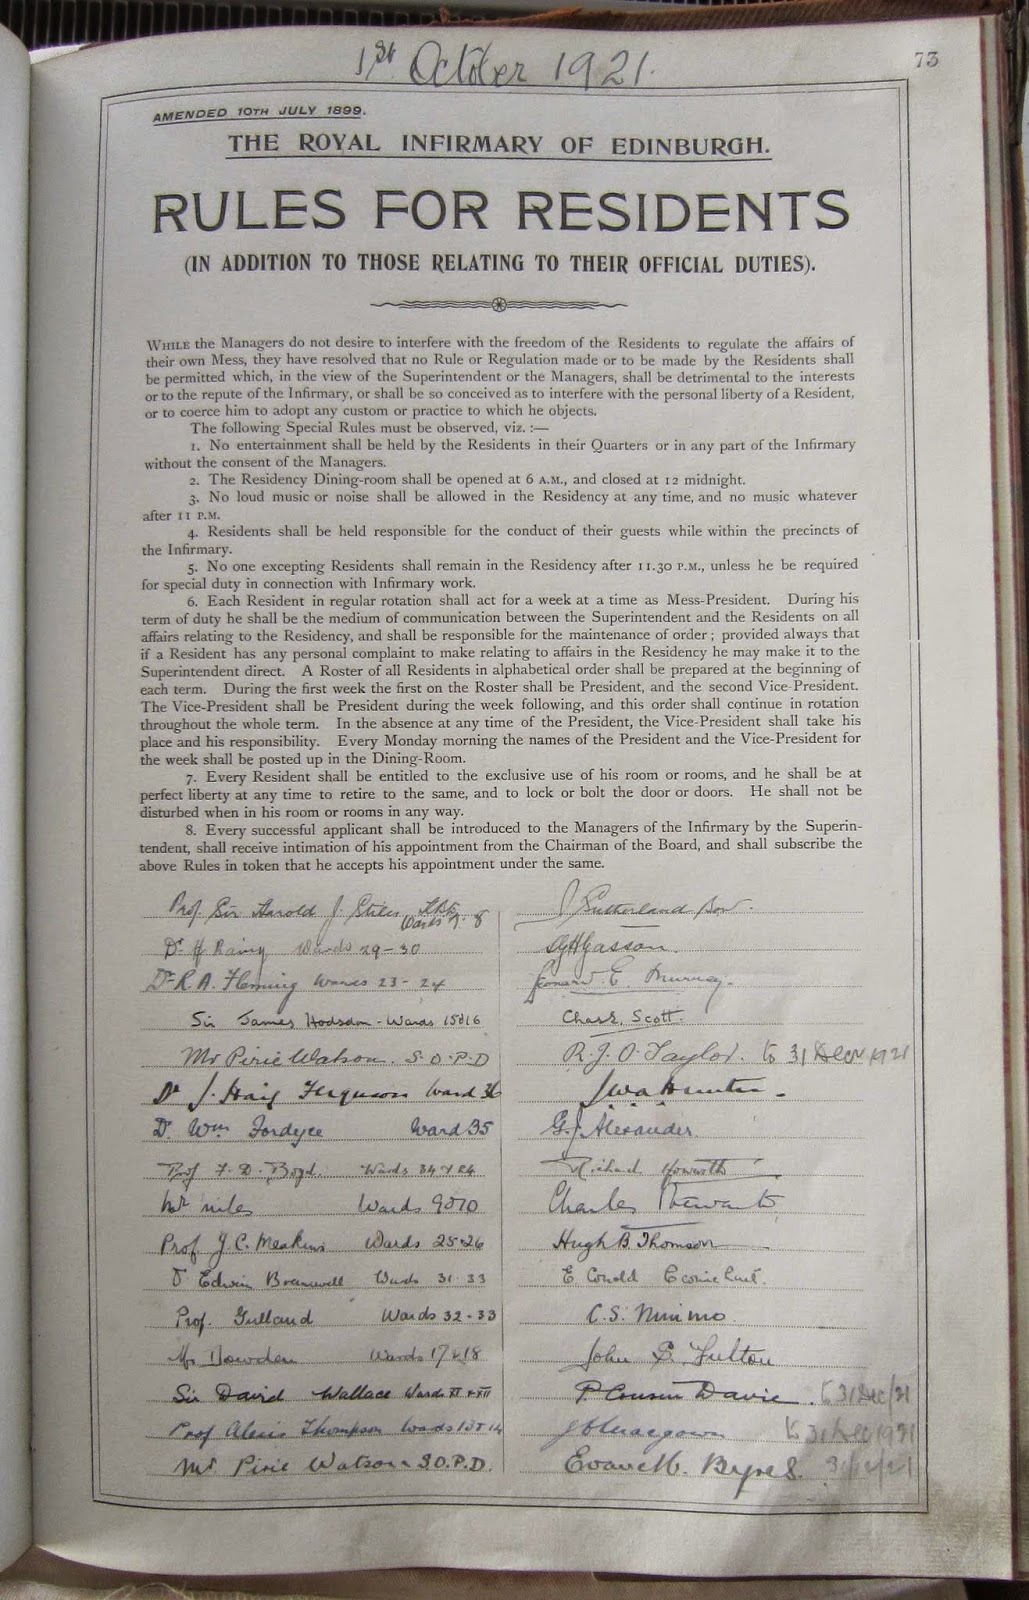 1st October 1921.
73
AMENDED 10TH JULY 1899.
THE ROYAL INFIRMARY OF EDINBURGH.
RULES FOR RESIDENTS
(IN ADDITION TO THOSE RELATING TO THEIR OFFICIAL DUTIES).
WHILE the Managers do not desire to interfere with the freedom of the Residents to regulate the affairs of
their own Mess, they have resolved that no Rule or Regulation made or to be made by the Residents shall
be permitted which, in the view of the Superintendent or the Managers, shall be detrimental to the interests
or to the repute of the Infirmary, or shall be so conceived as to interfere with the personal liberty of a Resident,
or to coerce him to adopt any custom or practice to which he objects.
The following Special Rules must be observed, viz. :—
1. No entertainment shall be held by the Residents in their Quarters or in any part of the Infirmary
without the consent of the Managers.
2. The Residency Dining-room shall be opened at 6 A.M., and closed at 12 midnight.
3. No loud music or noise shall be allowed in the Residency at any time, and no music whatever
after 11 P.M.
4. Residents shall be held responsible for the conduct of their guests while within the precincts of
the Infirmary.
5. No one excepting Residents shall remain in the Residency after 11.30 P.M., unless he be required
for special duty in connection with Infirmary work.
6. Each Resident in regular rotation shall act for a week at a time as Mess-President. During his
term of duty he shall be the medium of communication between the Superintendent and the Residents on all
affairs relating to the Residency, and shall be responsible for the maintenance of order ; provided always that
if a Resident has any personal complaint to make relating to affairs in the Residency he may make it to the
Superintendent direct. A Roster of all Residents in alphabetical order shall be prepared at the beginning of
each term. During the first week the first on the Roster shall be President, and the second Vice-President.
The Vice-President shall be President during the week following, and this order shall continue in rotation
throughout the whole term. In the absence at any time of the President, the Vice-President shall take his
place and his responsibility. Every Monday morning the names of the President and the Vice-President for
the week shall be posted up in the Dining-Room.
7. Every Resident shall be entitled to the exclusive use of his room or rooms, and he shall be at
perfect liberty at any time to retire to the same, and to lock or bolt the door or doors. He shall not be
disturbed when in his room or rooms in any way.
8. Every successful applicant shall be introduced to the Managers of the Infirmary by the Superin-
tendent, shall receive intimation of his appointment from the Chairman of the Board, and shall subscribe the
above Rules in token that he accepts his appointment under the same.
Prof Sir Harold J. Stiles Wards 7. 8 J Sutherland
Dr H Rainy Wards 29-30
Dr R. A. Fleming Wards 23 - 24 Leonard E. Murray.
Sir James Hodsdon - Wards 15&16 Chas. Scott.
Mr Pirie Watson. S.O.P.D R. J. O. Taylor. to 31 Decr 1921
Dr J. Haig Ferguson Ward 36 Hunter
Dr Wm Fordyce Ward 35 G. J. Alexander.
Prof F. D. Boyd. Wards 34 & 24 Richard Howorth
Mr Miles Wards 9&10 Charles Stewart
Prof J. C. Meakins Wards 25-26 Hugh B. Thomson
Dr Edwin Bramwell Wards 31. 33 E
Prof. Gulland Wards 32-33 C. S. Nimmo
Mr Dowden Wards 17 & 18 John Fulton
Sir David Wallace Wards XI & XII P. Cousin Davie. to 31 Dec/21
Prof Alexis Thompson Wards 13 & 14 to 31 Dec 1921
Mr Pirie Watson S.O.P.D. Byres. 31/12/21